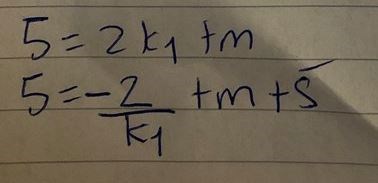 5 = 2k₁ + m
5 = -2/k₁ + m + 5